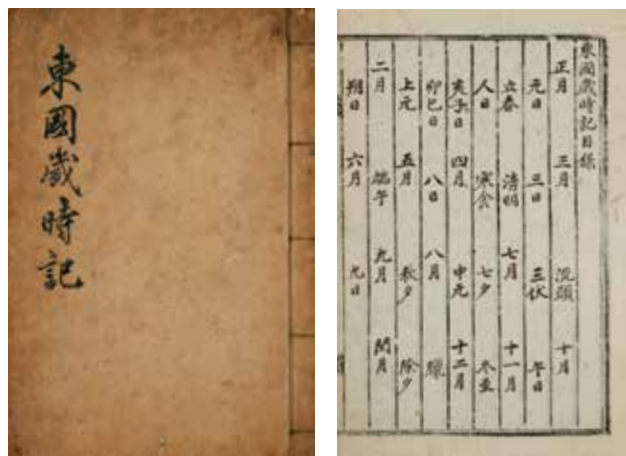 東國歲時記
東國歲時記目錄
正月 三月 流頭 十月
元日 三日 三伏 午日
立春 清明 七月 十一月
人日 寒食 七夕 冬至
亥子日 四月 中元 十二月
卯巳日 八日 八月 臘
上元 五月 秋夕 除夕
二月 端午 九月 閏月
朔日 六月 九日